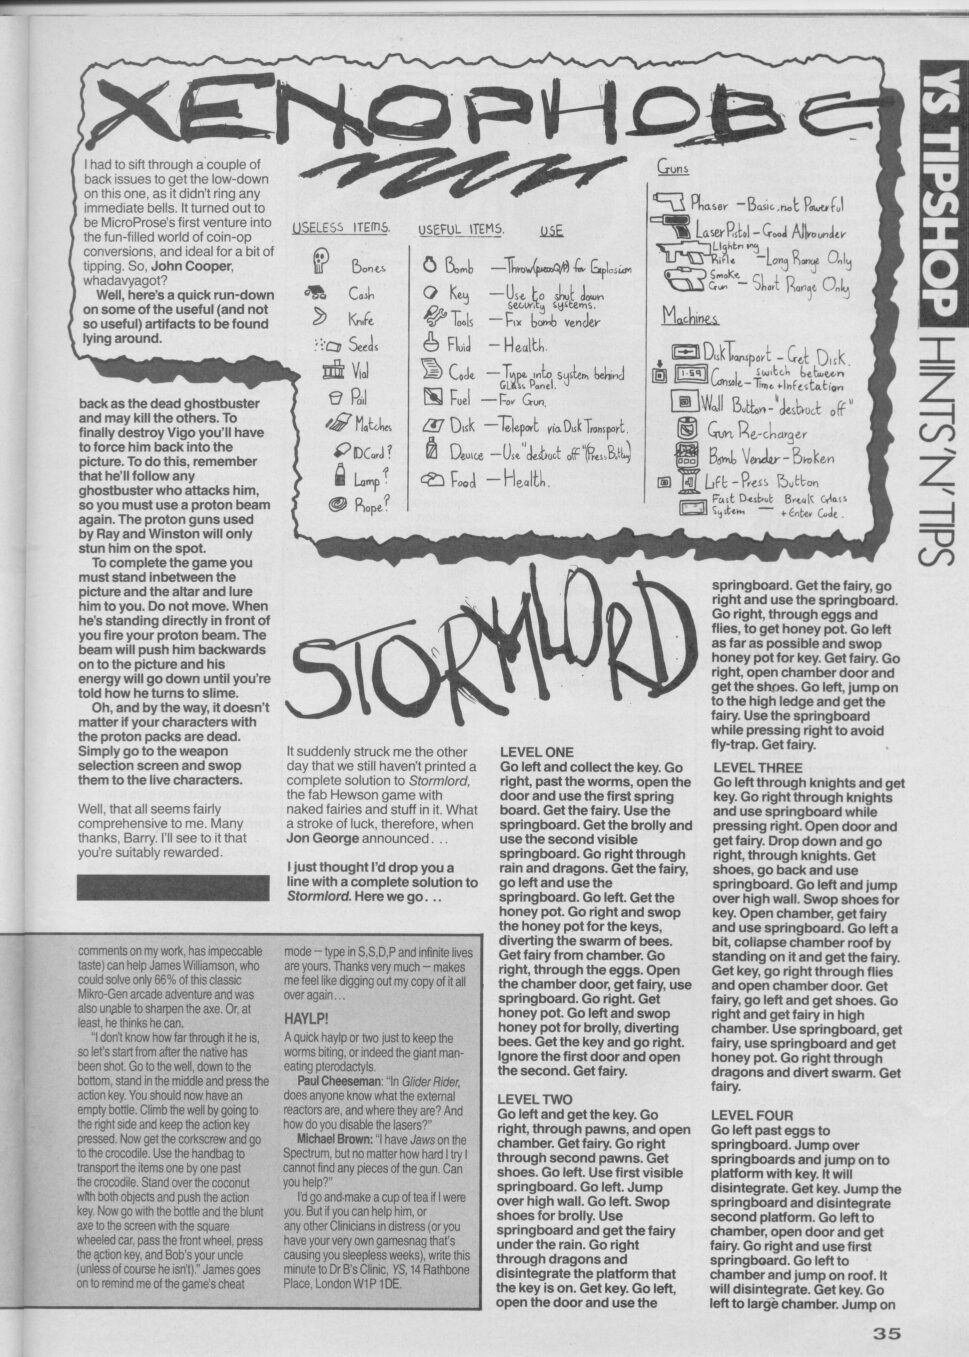 XENOPHOBE
I had to sift through a couple of
back issues to get the low-down
on this one, as it didn't ring any
immediate bells. It turned out to
be MicroProse's first venture into
the fun-filled world of coin-op
conversions, and ideal for a bit of
tipping. So, John Cooper,
whadavyagot?
Well, here's a quick run-down
on some of the useful (and not
so useful) artifacts to be found
lying around.
USELESS ITEMS.
Bones
Cash
Knife
Seeds
Vial
Pail
Matches
IDCard?
Lamp?
Rope?
USEFUL ITEMS. USE
Bomb —Throw(press Q/A) for Explosion
Key —Use to shut down
security systems.
Tools —Fix bomb vender
Fluid —Health.
Code —Type into system behind
Glass Panel.
Fuel —For Gun.
Disk —Teleport via Disk Transport.
Device —Use "destruct off" (Press Button)
Food —Health.
Guns
Phaser —Basic, not Powerful
Laser Pistol — Good Allrounder
Lightning
Rifle —Long Range Only
Smoke
Gun — Short Range Only
Machines
Disk Transport — Get Disk.
1:59 Console — switch between
Time + Infestation
Wall Button — "destruct off"
Gun Re-charger
Bomb Vender — Broken
Lift — Press Button
Fast Destrut Break Glass
System — + Enter Code.
YS TIPSHOP HINTS 'N' TIPS
back as the dead ghostbuster
and may kill the others. To
finally destroy Vigo you'll have
to force him back into the
picture. To do this, remember
that he'll follow any
ghostbuster who attacks him,
so you must use a proton beam
again. The proton guns used
by Ray and Winston will only
stun him on the spot.
To complete the game you
must stand inbetween the
picture and the altar and lure
him to you. Do not move. When
he's standing directly in front of
you fire your proton beam. The
beam will push him backwards
on to the picture and his
energy will go down until you're
told how he turns to slime.
Oh, and by the way, it doesn't
matter if your characters with
the proton packs are dead.
Simply go to the weapon
selection screen and swop
them to the live characters.
Well, that all seems fairly
comprehensive to me. Many
thanks, Barry. I'll see to it that
you're suitably rewarded.
STORMLORD
It suddenly struck me the other
day that we still haven't printed a
complete solution to Stormlord,
the fab Hewson game with
naked fairies and stuff in it. What
a stroke of luck, therefore, when
Jon George announced...
I just thought I'd drop you a
line with a complete solution to
Stormlord. Here we go...
LEVEL ONE
Go left and collect the key. Go
right, past the worms, open the
door and use the first spring
board. Get the fairy. Use the
springboard. Get the brolly and
use the second visible
springboard. Go right through
rain and dragons. Get the fairy,
go left and use the
springboard. Go left. Get the
honey pot. Go right and swop
the honey pot for the keys,
diverting the swarm of bees.
Get fairy from chamber. Go
right, through the eggs. Open
the chamber door, get fairy, use
springboard. Go right. Get
honey pot. Go left and swop
honey pot for brolly, diverting
bees. Get the key and go right.
Ignore the first door and open
the second. Get fairy.
LEVEL TWO
Go left and get the key. Go
right, through pawns, and open
chamber. Get fairy. Go right
through second pawns. Get
shoes. Go left. Use first visible
springboard. Go left. Jump
over high wall. Go left. Swop
shoes for brolly. Use
springboard and get the fairy
under the rain. Go right
through dragons and
disintegrate the platform that
the key is on. Get key. Go left,
open the door and use the
springboard. Get the fairy, go
right and use the springboard.
Go right, through eggs and
flies, to get honey pot. Go left
as far as possible and swop
honey pot for key. Get fairy. Go
right, open chamber door and
get the shoes. Go left, jump on
to the high ledge and get the
fairy. Use the springboard
while pressing right to avoid
fly-trap. Get fairy.
LEVEL THREE
Go left through knights and get
key. Go right through knights
and use springboard while
pressing right. Open door and
get fairy. Drop down and go
right, through knights. Get
shoes, go back and use
springboard. Go left and jump
over high wall. Swop shoes for
key. Open chamber, get fairy
and use springboard. Go left a
bit, collapse chamber roof by
standing on it and get the fairy.
Get key, go right through flies
and open chamber door. Get
fairy, go left and get shoes. Go
right and get fairy in high
chamber. Use springboard, get
fairy, use springboard and get
honey pot. Go right through
dragons and divert swarm. Get
fairy.
LEVEL FOUR
Go left past eggs to
springboard. Jump over
springboards and jump on to
platform with key. It will
disintegrate. Get key. Jump the
springboard and disintegrate
second platform. Go left to
chamber, open door and get
fairy. Go right and use first
springboard. Go left to
chamber and jump on roof. It
will disintegrate. Get key. Go
left to large chamber. Jump on
comments on my work, has impeccable
taste) can help James Williamson, who
could solve only 66% of this classic
Mikro-Gen arcade adventure and was
also unable to sharpen the axe. Or, at
least, he thinks he can.
"I don't know how far through it he is,
so let's start from after the native has
been shot. Go to the well, down to the
bottom, stand in the middle and press the
action key. You should now have an
empty bottle. Climb the well by going to
the right side and keep the action key
pressed. Now get the corkscrew and go
to the crocodile. Use the handbag to
transport the items one by one past
the crocodile. Stand over the coconut
with both objects and push the action
key. Now go with the bottle and the blunt
axe to the screen with the square
wheeled car, pass the front wheel, press
the action key, and Bob's your uncle
(unless of course he isn't)." James goes
on to remind me of the game's cheat
mode — type in S,S,D,P and infinite lives
are yours. Thanks very much — makes
me feel like digging out my copy of it all
over again...
HAYLP!
A quick haylp or two just to keep the
worms biting, or indeed the giant man-
eating pterodactyls.
Paul Cheeseman: "In Glider Rider,
does anyone know what the external
reactors are, and where they are? And
how do you disable the lasers?"
Michael Brown: "I have Jaws on the
Spectrum, but no matter how hard I try I
cannot find any pieces of the gun. Can
you help?"
I'd go and make a cup of tea if I were
you. But if you can help him, or
any other Clinicians in distress (or you
have your very own gamesnag that's
causing you sleepless weeks), write this
minute to Dr B's Clinic, YS, 14 Rathbone
Place, London W1P 1DE.
35